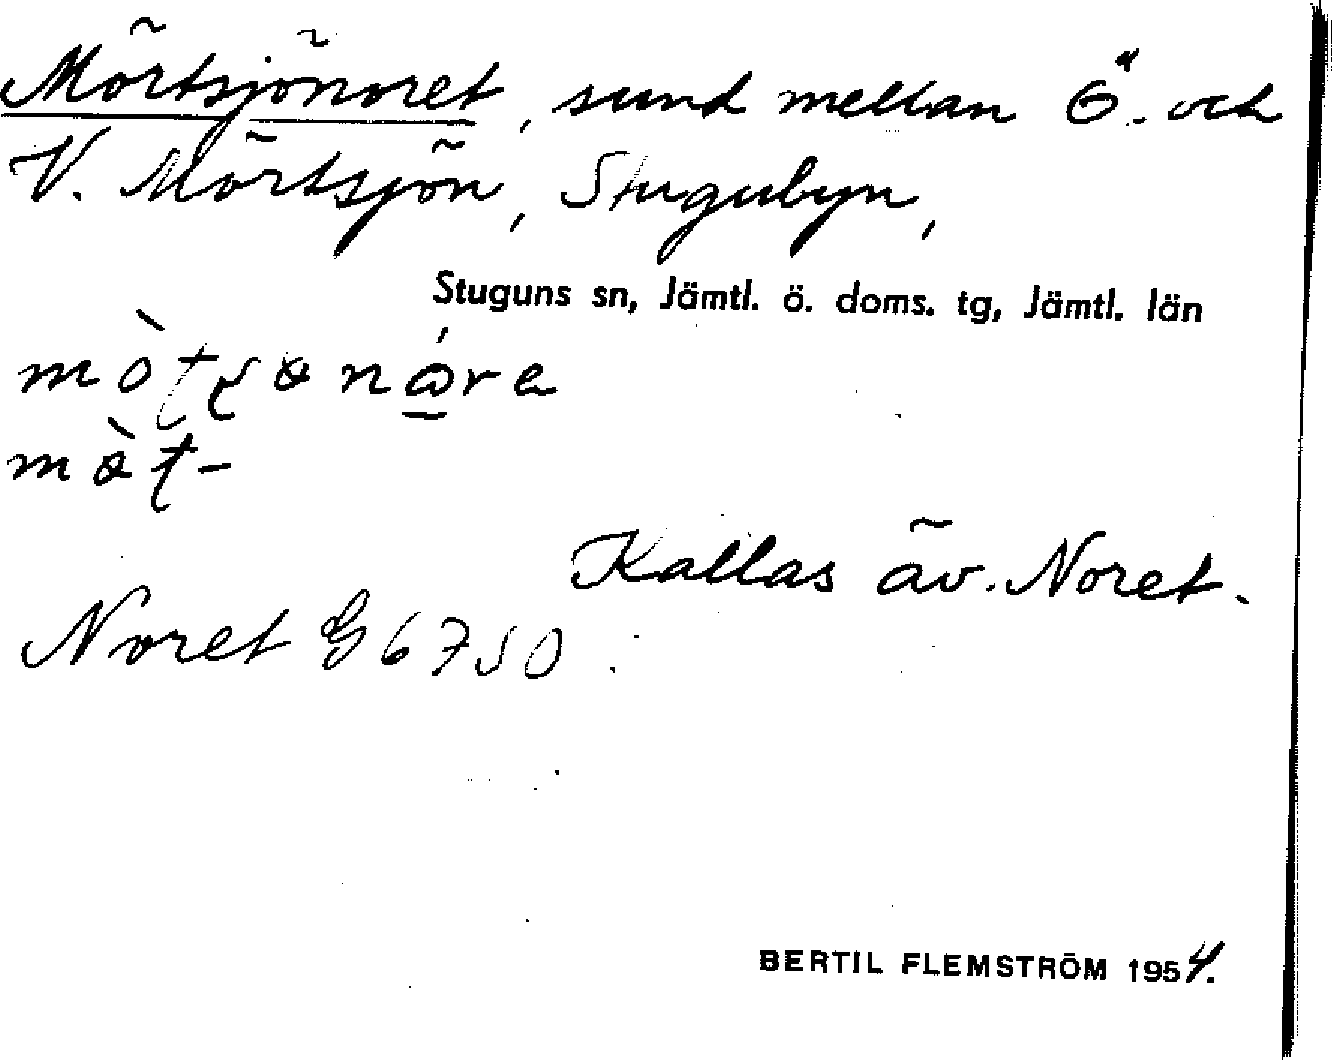 Mörtsjönoret, sund mellan Ö. och
V. Mörtsjön, Stugubyn,
Stuguns sn, Jämtl. ö. doms. tg, Jämtl. län
Kallas äv. Noret.
Noret G 6750
BERTIL FLEMSTRÖM 1954.